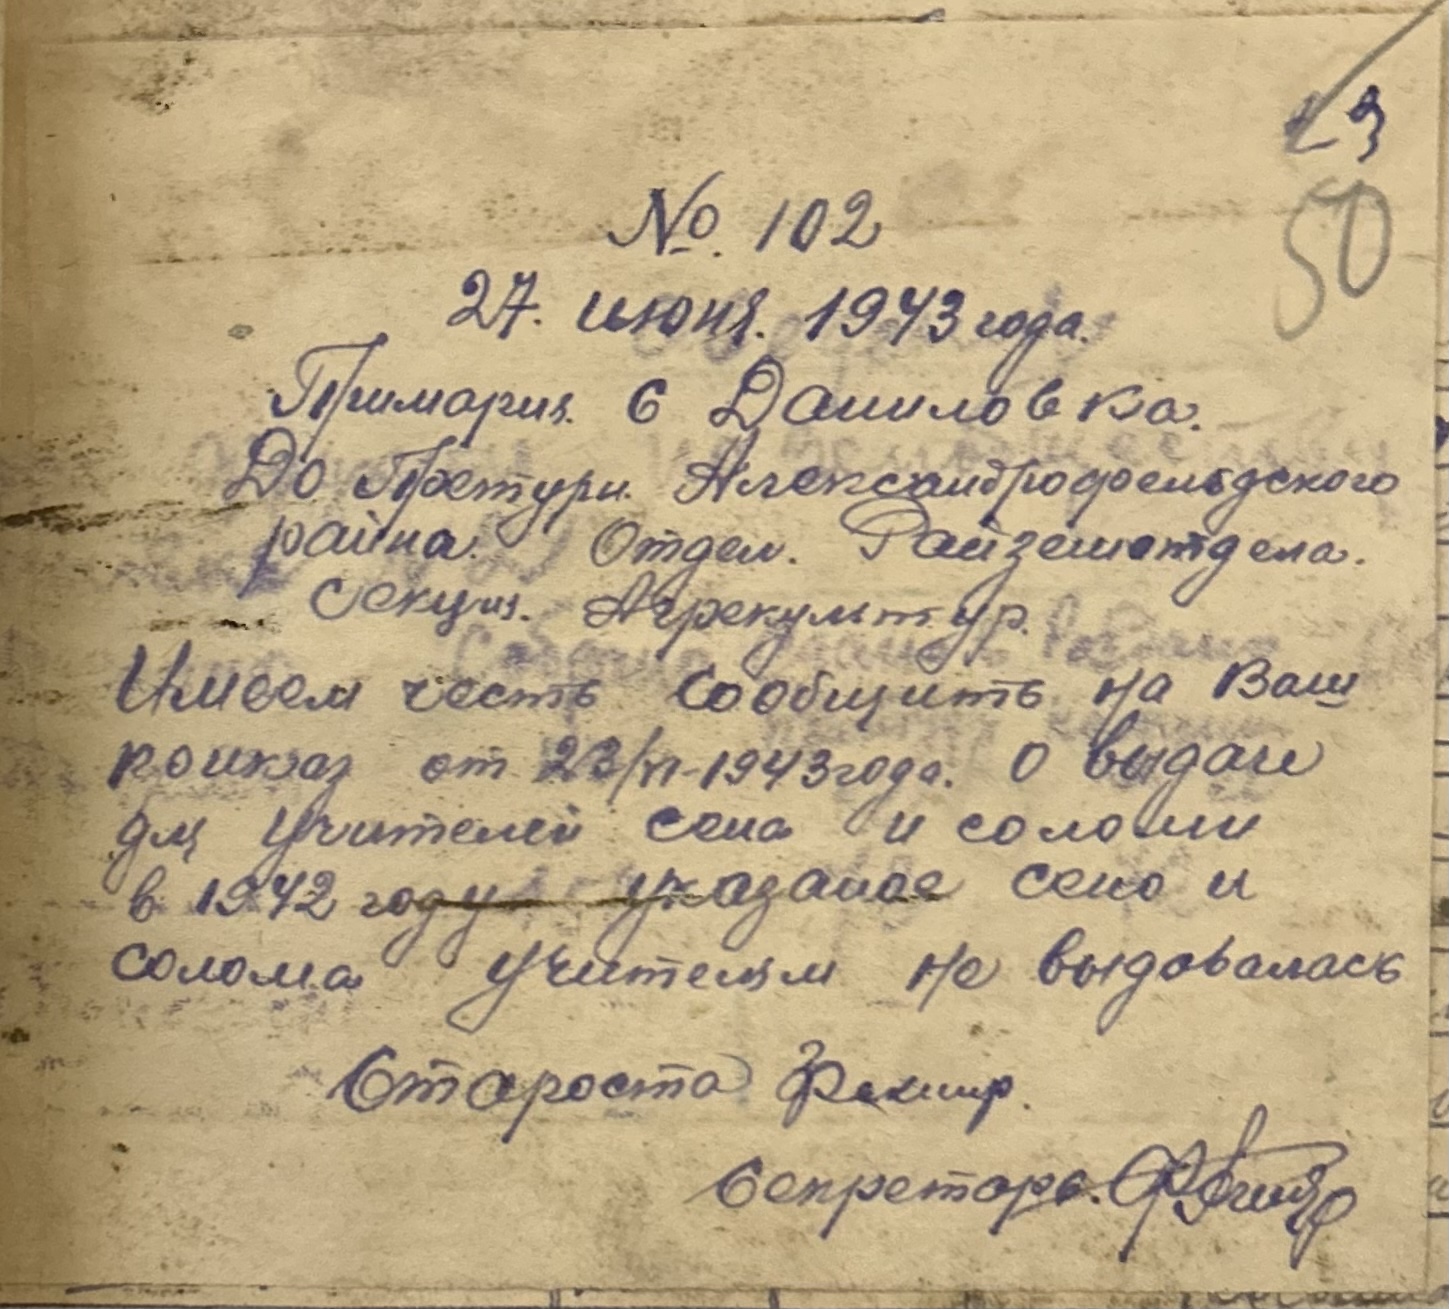 23
50
№. 102
27. июня. 1943 года.
Примария. с Даниловка.
До Претури. Александрофельдского
района. Отдел. Райземотдела.
Секция. Агрекультур.
Имеем честь сообщить на Ваш
приказ от 23/VI-1943 года. О выдаче
для учителей сена и соломи
в 1942 году указаное сено и
солома учителям не выдовалась
Староста
Секретарь.